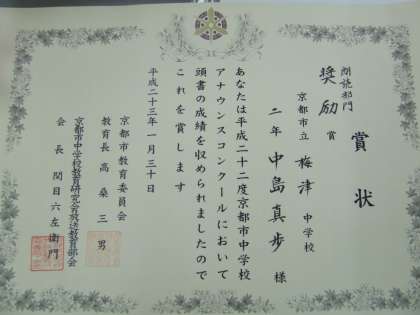 賞状
朗読部門
奨励賞
京都市立梅津中学校
二年中島真歩様
あなたは平成二十二度京都市中学校
アナウンスコンクールにおいて
頭書の成績を収められましたので
これを賞します
平成二十三年一月三十日
京都市教育委員会
教育長高桑三男
京都市中学校教育研究会放送教育部会
会長関目六左衛門